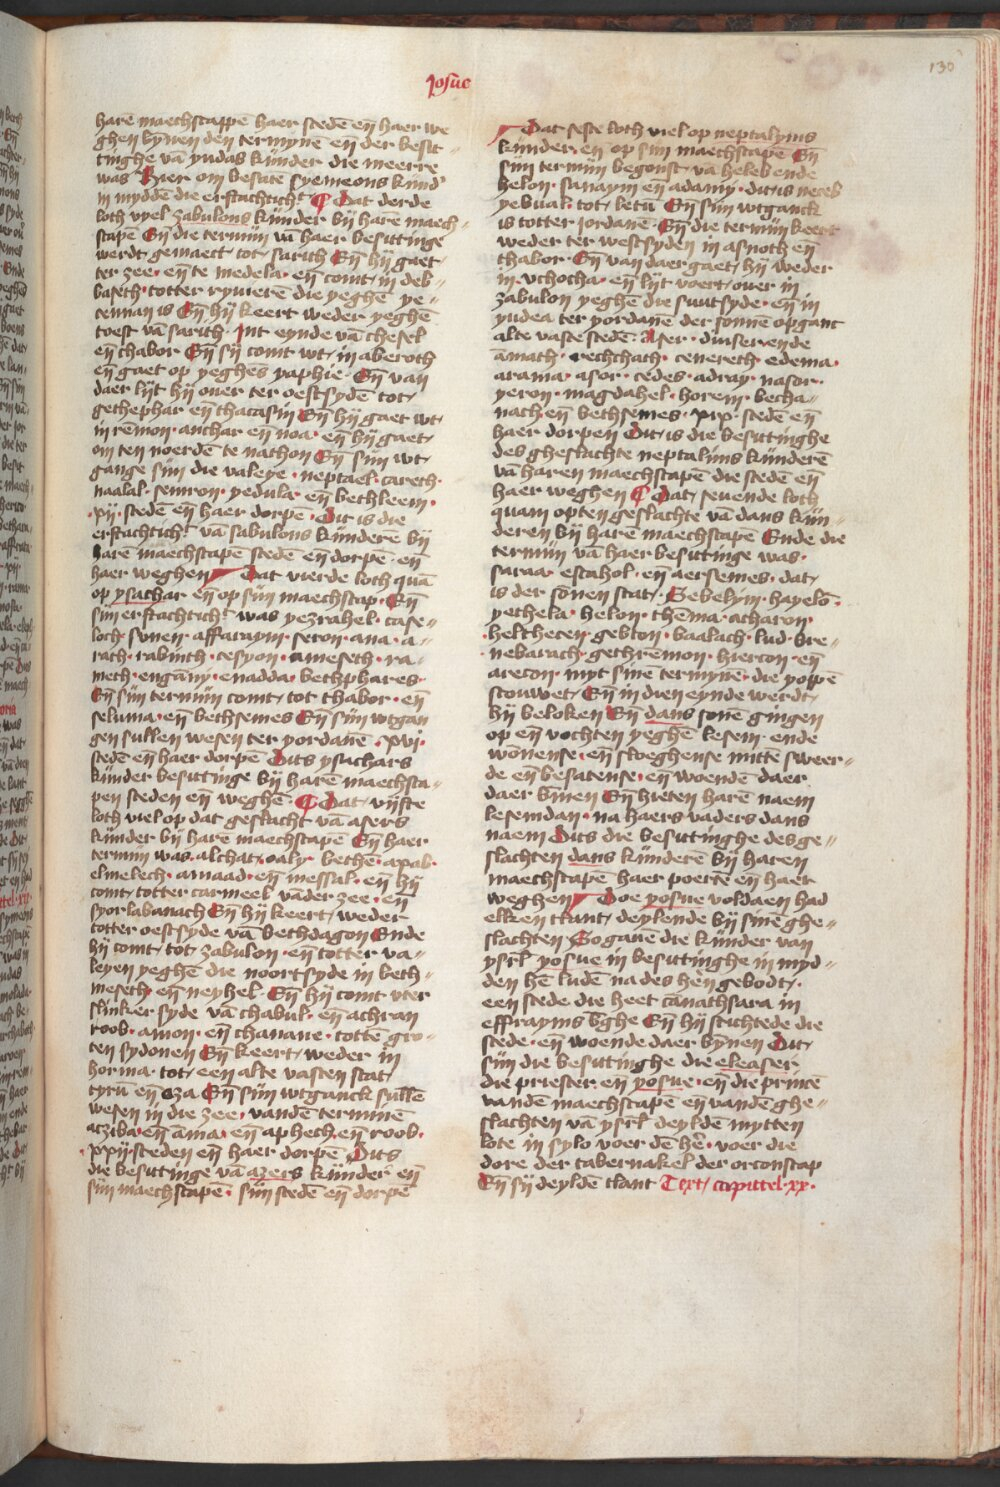 130
Josue
harē maechstappē haer stedē eñ haer we
ghen bȳnen den termynē eñ der besit⸗
tinghe vā yudas kinder die meerre
was Hier om besatē syemeons kind'
in myddē die erftachticht ¶ Dat derde
loth vyel zabulons kinder bij harē maech⸗
stapē Eñ die termijn vā haer besittinge
werdt gemaect tot sarith Eñ hij gaet
ter zee · eñ te medela · eñ comt in deb⸗
baseth · totter ryuierē die yeghē ye⸗
cennan is Eñ hij keert weder yeghē
toest vā sarith · Int eynde vā chesel
eñ thabor Eñ sij comt wt in aberoth
eñ gaet op yeghes yaphie · Eñ van
daer lijt hij ouer ter oestsydē tot
gethephar eñ thacasin Eñ hij gaet wt
in rēmon · anchar eñ noa · eñ hij gaet
om ten noerdē te nathon Eñ sijn wt
gange sijn die valeye · neptael · careth ·
naalal · semron · yedula · eñ bethleem ·
· xij · stedē eñ haer dorpē · Dit is die
erftachticht vā sabulons kinderē bij
harē maechstapē stedē eñ dorpē · eñ
haer weghen Dat vierde loth quā
op ysachar eñ op sijn maechstap · Eñ
sijn erftachticht was yezrahel · case⸗
loth · sunen · affaraym · seron · ana · a⸗
rath · rabinth · cesyon · ameseth · ra⸗
meth · engāny · enadda · bethphares ·
Eñ sijn termijn comt tot thabor · eñ
seluma · eñ bethsemes Eñ sijn wtgan
gen sullen wesen ter yordanē · xvi ·
stedē eñ haer dorpē Dits ysachars
kinder besittinge bij harē maechsta⸗
pen steden eñ weghē · ¶ Dat vijfte
loth viel op dat geslacht vā asers
kinder bij harē maechstapē Eñ haer
termijn was · alchat · oaly · bethē · axab ·
elmelech · amaad · eñ messal · eñ hij
comt totter carmeel vāder zee · eñ
syor labanach Eñ hij keert weder
totter oestsyde vā bethdagon Ende
hij comt tot zabulon · eñ totter va⸗
leyen yeghē die noortsyde in beth⸗
meseth eñ neyhel · Eñ hij comt vter
slinker syde vā chabul · eñ achran
roob · amon · eñ chanane · tottē gro⸗
ten sydonen Eñ keert weder in
horma tot een alte vasten stat
tyrū eñ oza Eñ sijn wtganck sullē
wesen in die zee · vandē terminē
aziba eñ āma · eñ aphech eñ roob ·
· xxij steden eñ haer dorpē Dits
die besittinge vā azers kinder eñ
sijn maechstapē · sijn stedē eñ dorpē
Dat seste loth viel op neptalyms
kinder · eñ op sijn maechstapē Eñ
sijn termijn begonst · vā heleb ende
helon · sanaym eñ adamy · dit is neceb
yebual · tot letū Eñ sijn wtganck
is totter Jordanē · Eñ die termijn keert
weder ter westsyden in asnoth eñ
thabor · Eñ van daer gaet hij weder
in vchocha · eñ lijt voert ouer in
zabulon yeghē die suutsyde · eñ in
yudea ter yordanē der sonnē opganc
alte vaste stedē · Aser · diuserende
āmath · rechchath · cenereth · edema ·
arama · asor · cedes · adray · nasor ·
yeron · magdahel · horem · becha⸗
nath eñ bethsemes · xix · stedē eñ
haer dorpen Dit is die besittinghe
des gheslachte neptalims kinderē
vā haren maechstapē die stedē eñ
haer weghen ¶ Dat seuende loth
quam opten geslachte vā dans kin⸗
deren bij harē maechstapē Ende die
termijn vā haer besittinge was ·
saraa · estahol · eñ aersemes · dat
is der sonen stat · Sebelym · hayelō ·
yethela · helon · thēma · acharon ·
· helthecen · gebton · baalach · lud · bre⸗
nebarach · gethrēmon · hiercon · eñ
arecon · myt sinē termynē · die yopē
scouwet Eñ in dien eynde werdt
hij beloken Eñ dans sonē gingen
op eñ vochten yeghē lesem · ende
wōnense · eñ sloeghense mittē sweer⸗
de eñ besatense · eñ woendē daer
daer bīnen Eñ hieten harē naem
lesemdan · na haers vaders dans
naem Dits die besittinghe des ge⸗
slachten dans kinderē bij haren
maechstapē haer poertē eñ haer
weghen Doe yosue voldaen had
elken tlant deylende bij sinē ghe⸗
slachten So gauē die kinder van
ysrl̄ yosue in besittinghe in myd⸗
den hē ludē na des hēn gebodt ·
een stede die heet cānathsara in
effrayms b'ghe Eñ hij stichtede die
stede · eñ woende daer bynen Dit
sijn die besittinghe die eleaser
die priester eñ yosue · eñ die princē
vandē maechstapē eñ vandē ghe⸗
slachten vā ysrl̄ deyldē mytten
lote in sylo voer dē hē · voer die
dore der tabernakel der orconstap
Eñ sij deyldē tlant Text capittel · xx ·